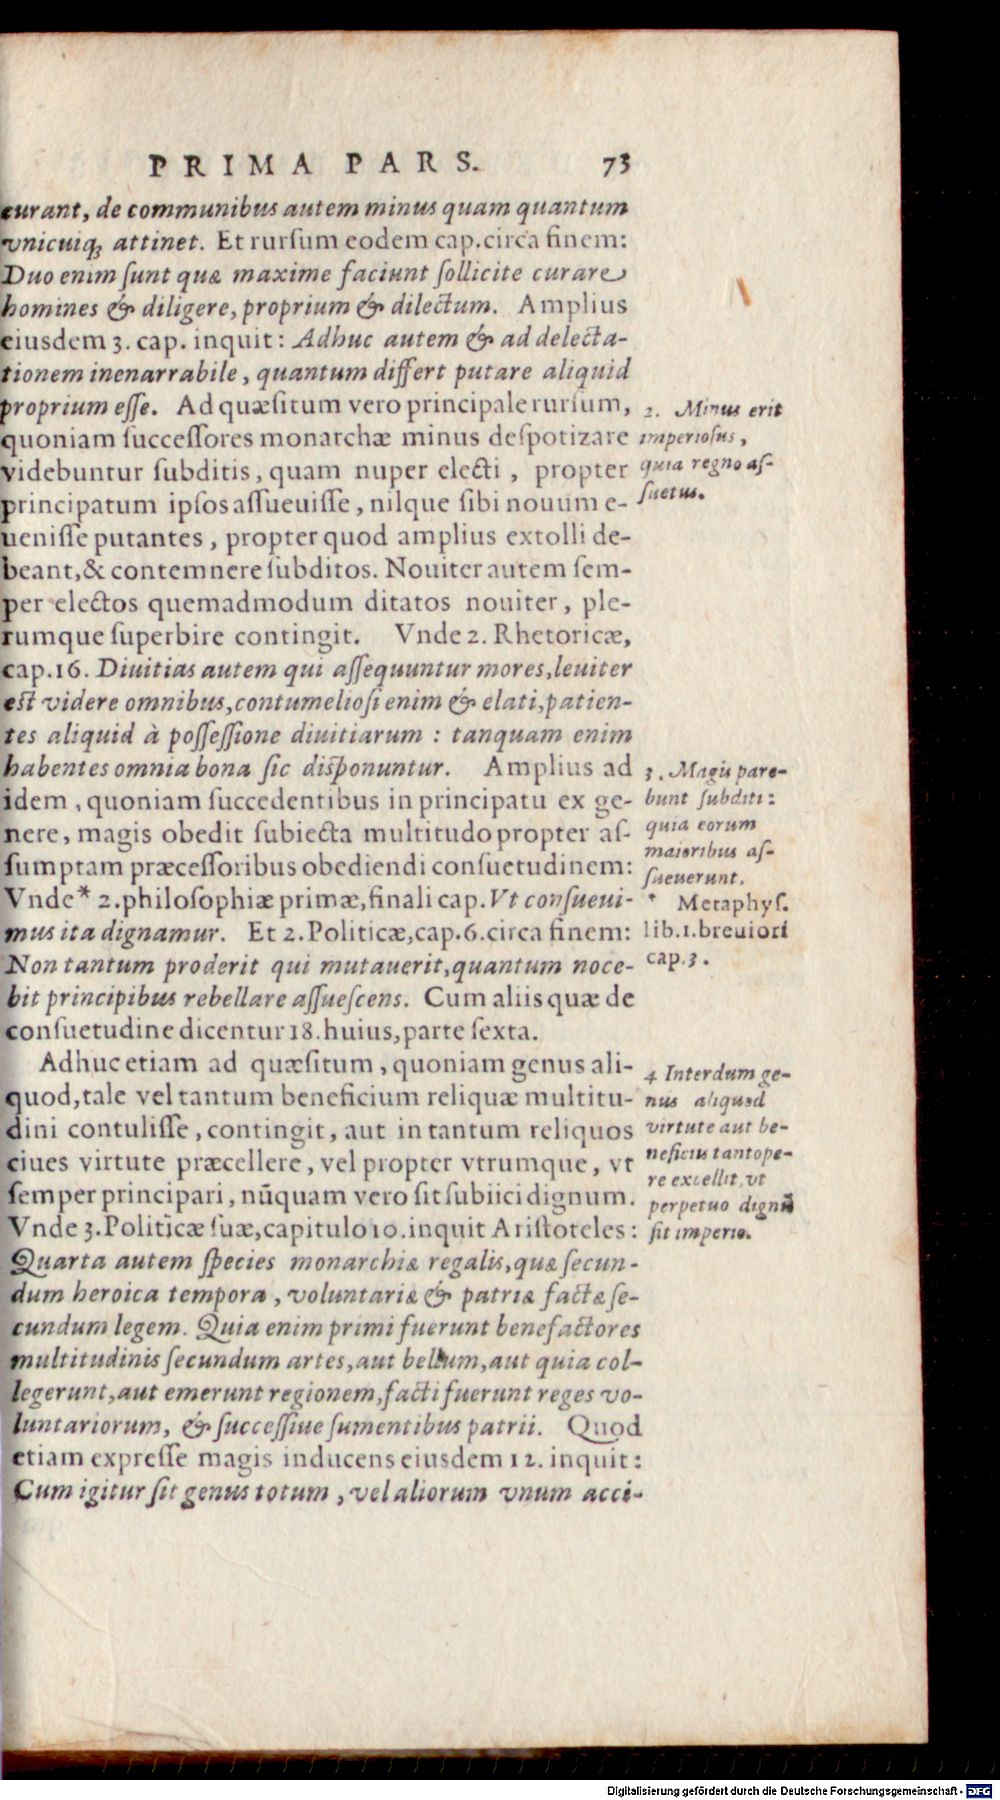 PRIMA PARS. 73
curant, de communibus autem minus quam quantum
vnicuiq; attinet. Et rurſum eodem cap. circa finem:
Duo enim ſunt quæ maxime faciunt ſollicite curare
homines & diligere, proprium & dilectum. Amplius
eiusdem 3. cap. inquit: Adhuc autem & ad delecta-
tionem inenarrabile, quantum differt putare aliquid
proprium eſſe. Ad quæſitum vero principale rurſum,
quoniam ſucceſſores monarchæ minus deſpotizare
videbuntur ſubditis, quam nuper electi, propter
principatum ipſos aſſueuiſſe, nilque ſibi nouum e-
ueniſſe putantes, propter quod amplius extolli de-
beant, & contemnere ſubditos. Nouiter autem ſem-
per electos quemadmodum ditatos nouiter, ple-
rumque ſuperbire contingit. Vnde 2. Rhetoricæ,
cap. 16. Diuitias autem qui aſſequuntur mores, leuiter
eſt videre omnibus, contumelioſi enim & elati, patien-
tes aliquid à poſſeſſione diuitiarum: tanquam enim
habentes omnia bona ſic diſponuntur. Amplius ad
idem, quoniam ſuccedentibus in principatu ex ge-
nere, magis obedit ſubiecta multitudo propter aſ-
ſumptam præceſſoribus obediendi conſuetudinem:
Vnde* 2. philoſophiæ primæ, finali cap. Vt conſueui-
mus ita dignamur. Et 2. Politicæ, cap. 6. circa finem:
Non tantum proderit qui mutauerit, quantum noce-
bit principibus rebellare aſſueſcens. Cum aliis quæ de
conſuetudine dicentur 18. huius, parte ſexta.
Adhuc etiam ad quæſitum, quoniam genus ali-
quod, tale vel tantum beneficium reliquæ multitu-
dini contuliſſe, contingit, aut in tantum reliquos
ciues virtute præcellere, vel propter vtrumque, vt
ſemper principari, nũquam vero ſit ſubiici dignum.
Vnde 3. Politicæ ſuæ, capitulo 10. inquit Ariſtoteles:
Quarta autem ſpecies monarchiæ regalis, quæ ſecun-
dum heroica tempora, voluntariæ & patriæ factæ ſe-
cundum legem. Quia enim primi fuerunt benefactores
multitudinis ſecundum artes, aut bellum, aut quia col-
legerunt, aut emerunt regionem, facti fuerunt reges vo-
luntariorum, & ſucceſſiue ſumentibus patrii. Quod
etiam expreſſe magis inducens eiusdem 12. inquit:
Cum igitur ſit genus totum, vel aliorum vnum acci-
2. Minus erit
imperioſus,
quia regno aſ-
ſuetus.
3. Magis pare-
bunt ſubditi:
quia eorum
maioribus aſ-
ſueuerunt.
* Metaphyſ.
lib. 1. breuiori
cap. 3.
4 Interdum ge-
nus aliquod
virtute aut be-
neficiis tantope-
re excellit, vt
perpetuo dignũ
ſit imperio.
Digitalisierung gefördert durch die Deutsche Forschungsgemeinschaft - DFG